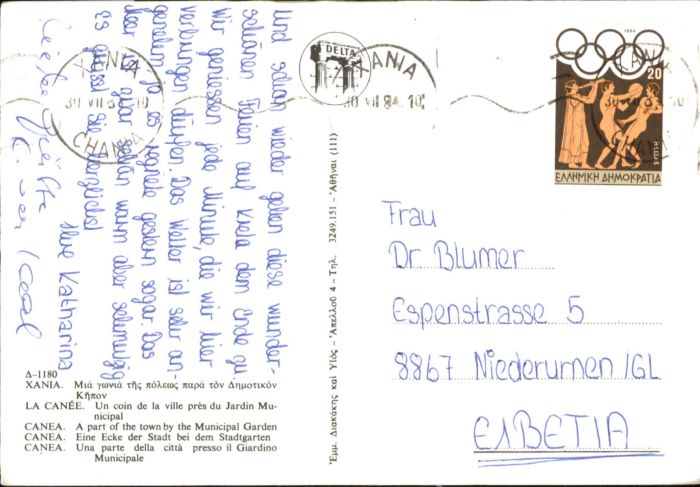 Und schon wieder gehen diese wunder-
schönen Ferien auf Kreta dem Ende zu
wir geniessen jede Minute, die wir hier
verbringen dürfen. Das Wetter ist sehr an-
genehm, ja es regnete gestern sogar. Das
Meer ist zwar schön warm aber schmutzig
Es grüsst Sie herzlichst
Ihre Katharina
Liebe Grüsse
Δ-1180
ΧΑΝΙΑ. Μιά γωνιά τῆς πόλεως παρά τόν Δημοτικόν
Κῆπον
LA CANÉE. Un coin de la ville près du Jardin Mu-
nicipal
CANEA. A part of the town by the Municipal Garden
CANEA. Eine Ecke der Stadt bei dem Stadtgarten
CANEA. Una parte della città presso il Giardino
Municipale
Ἐμμ. Διακάκης καί Υἱός - Ἀπέλλου 4 - Τηλ. 3249.151 - Ἀθῆναι (111)
DELTA
XANIA
30 VII 84. 10
CHANIA
XANIA
30 VII 84. 10
1984
20
HELLAS
ΕΛΛΗΝΙΚΗ ΔΗΜΟΚΡΑΤΙΑ
Frau
Dr Blumer
Espenstrasse 5
8867 Niederurnen /GL
ΕΛΒΕΤΙΑ